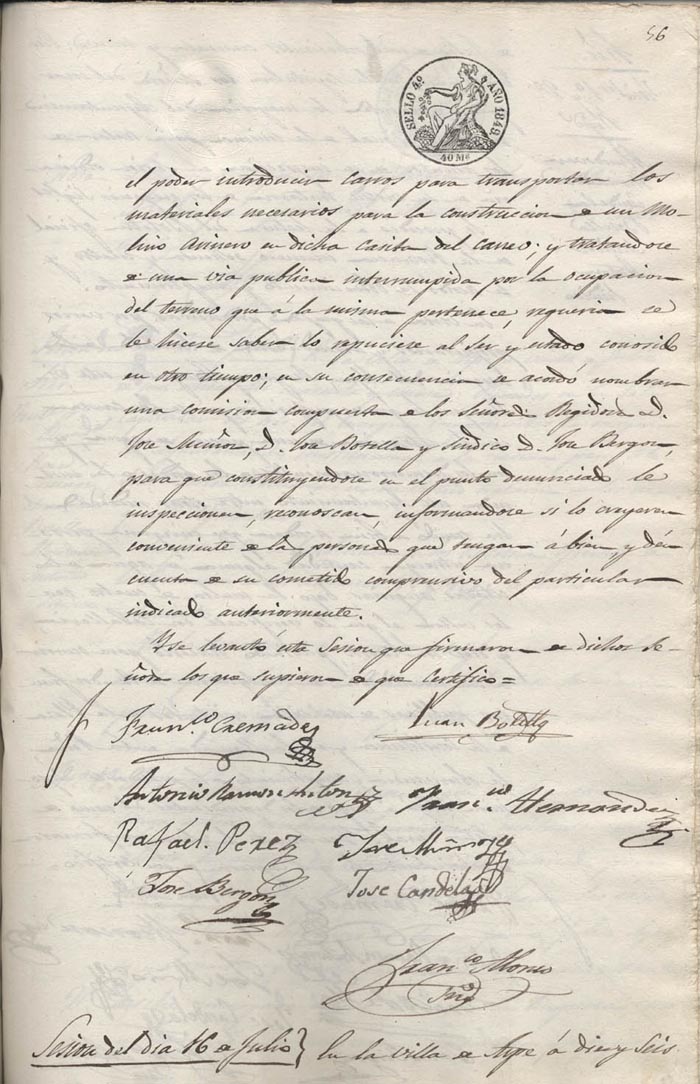 56
SELLO 4º. AÑO 1849.
40 Ms
el poder introducir carros para transportar los
materiales necesarios para la construccion de un Mo-
lino Arinero en dicha casita del carreo; y tratandose
de una via publica interrumpida por la ocupacion
del terreno que á la misma pertenece, requeria se
le hiciese saber lo repusiese al ser y estado conocido
en otro tiempo; en su consecuencia se acordó nombrar
una comision compuesta de los Señores Regidores D.
Jose Muñoz, D. Jua Botella y Sindico D. Jose Bergon,
para que constituyendose en el punto denunciado le
inspeccionen, reconoscan, informandose si lo creyeren
conveniente de las personas que tengan á bien y dén
cuenta de su cometido comprensivo del particular
indicado anteriormente.
Y se levantó esta Sesion que firmaron de dichos Se-
ñores los que supieron de que Certifico=
Franco. Cremades
Juan Botella
Antonio Ramon
Franco. Hernandez
Rafael. Perez
Jose Muñoz
Jose Bergon
Jose Candela
Franco Alonso
Srio
Sesion del dia 16 de Julio} En la villa de Aspe á diez y seis